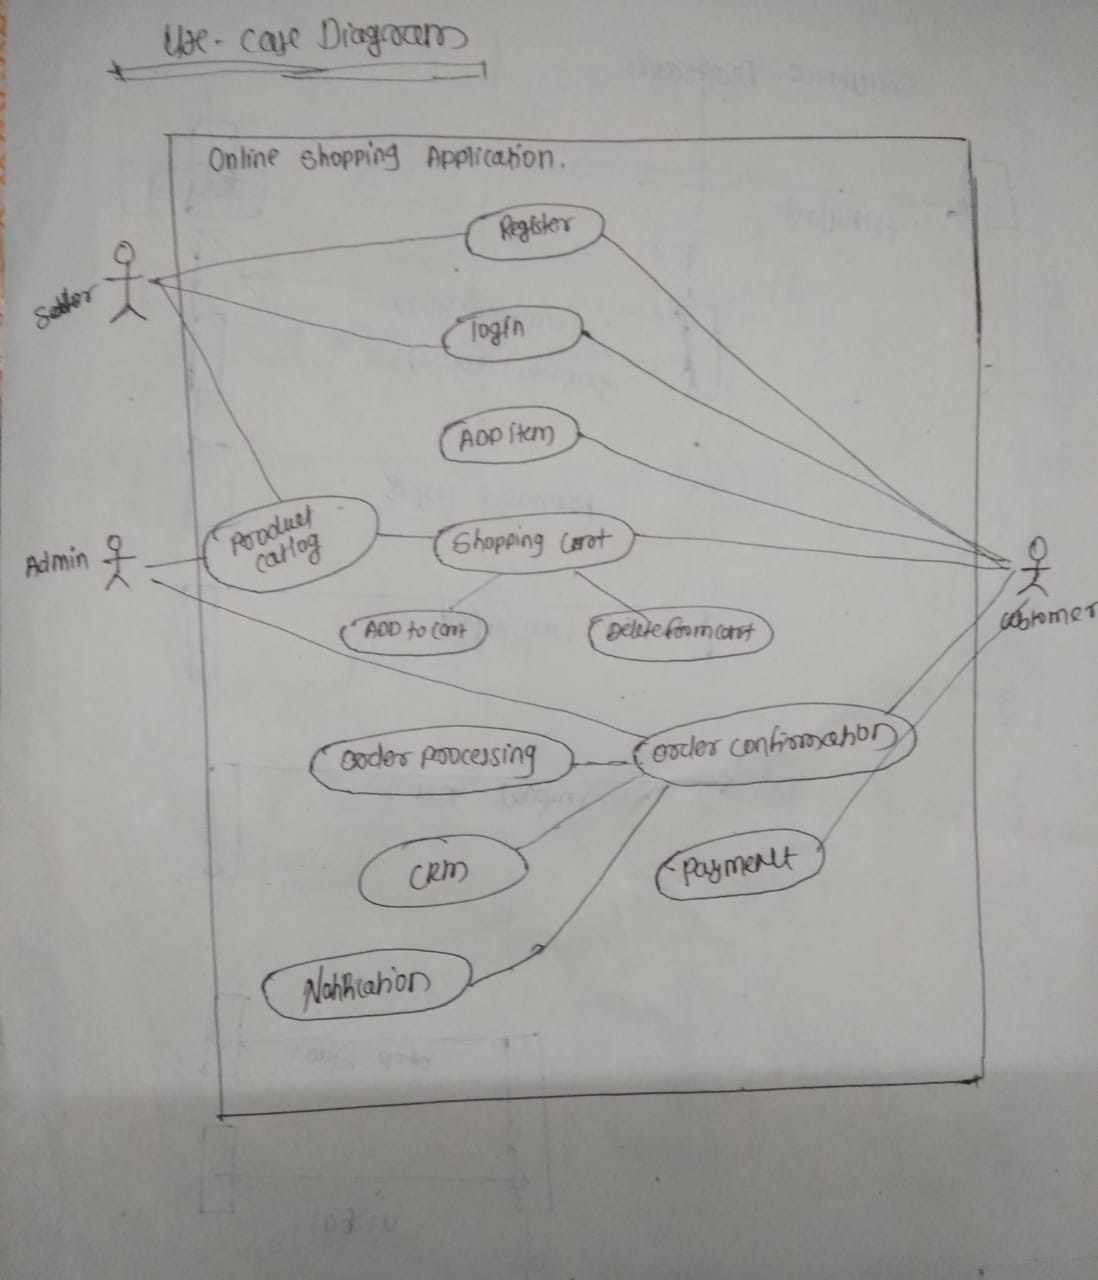 Use-case Diagram
Online Shopping Application.
Register
Seller
login
ADD item
Product
catlog
Shopping Cart
Admin
Customer
ADD to Cart
Delete from cart
Order Processing
Order confirmation
CRM
Payment
Notification